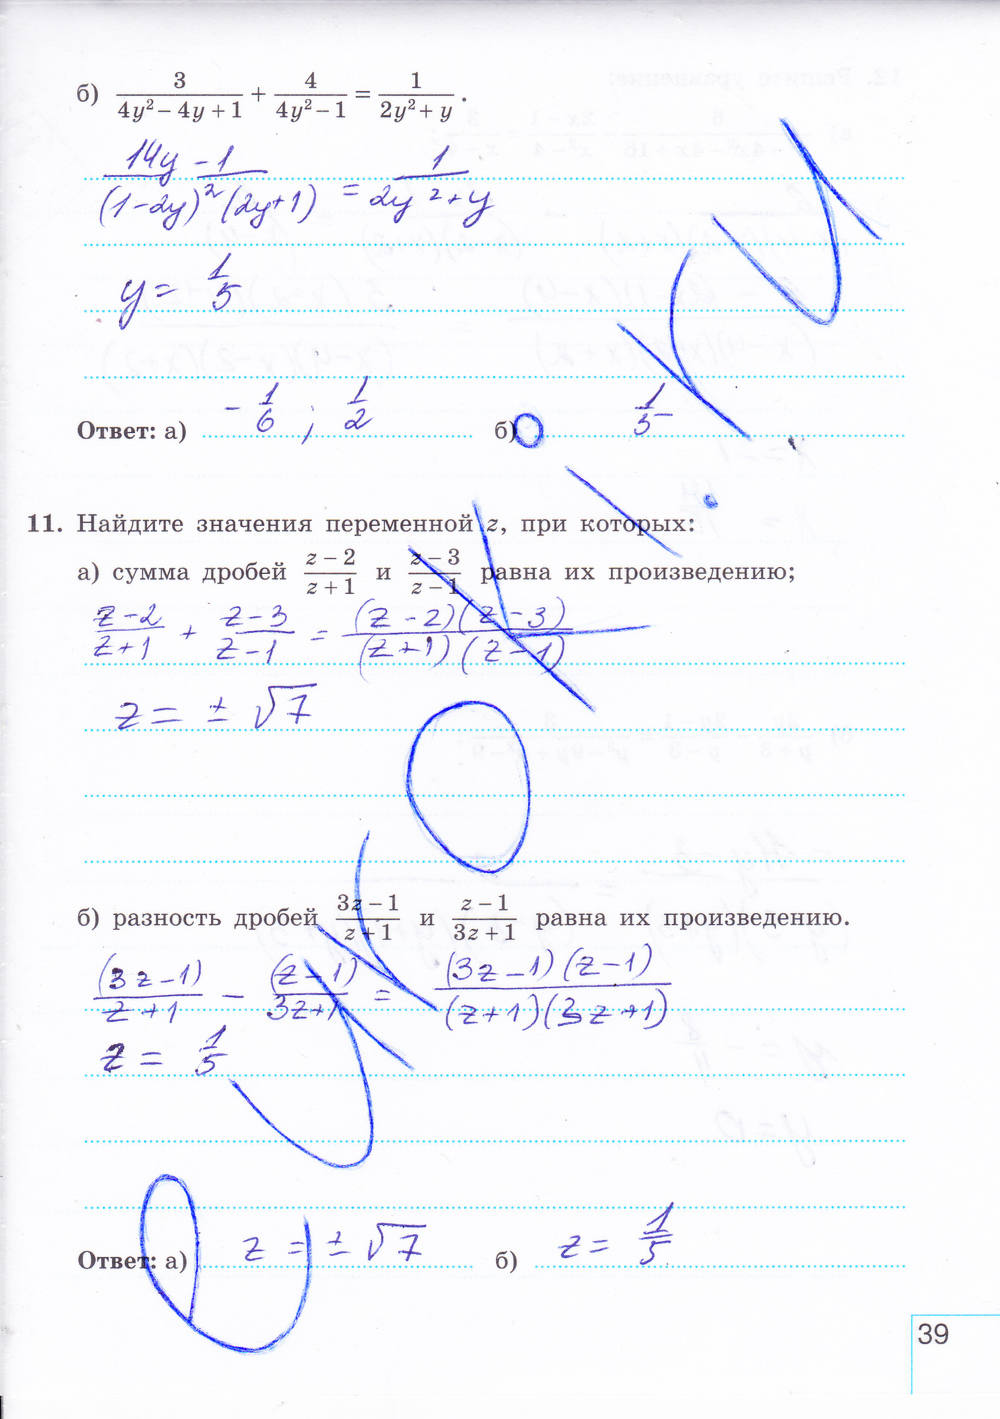 б) 3/(4y² − 4y + 1) + 4/(4y² − 1) = 1/(2y² + y).
(14y − 1)/((1−2y)²(2y+1)) = 1/(2y² + y)
y = 1/5
Ответ: а) −1/6 ; 1/2 б) 1/5
11. Найдите значения переменной z, при которых:
а) сумма дробей (z − 2)/(z + 1) и (z − 3)/(z − 1) равна их произведению;
(z−2)/(z+1) + (z−3)/(z−1) = (z−2)(z−3)/(z+1)(z−1)
z = ± √7
б) разность дробей (3z − 1)/(z + 1) и (z − 1)/(3z + 1) равна их произведению.
(3z−1)/(z+1) − (z−1)/(3z+1) = (3z−1)(z−1)/(z+1)(3z+1)
z = 1/5
Ответ: а) z = ± √7 б) z = 1/5
39